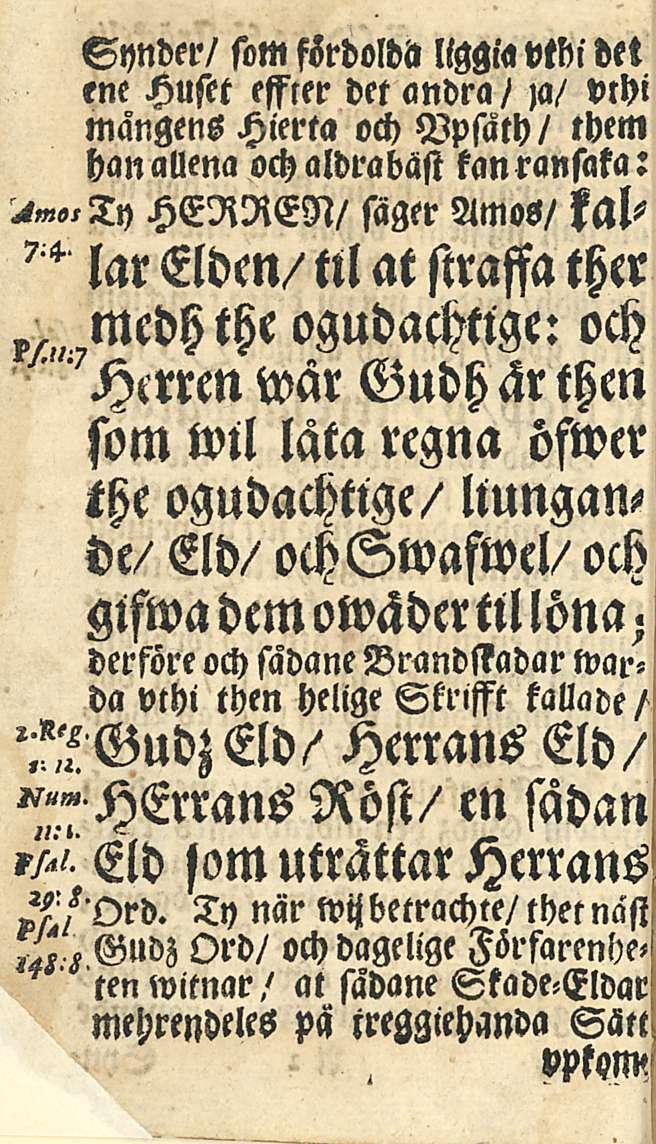 Synder/ som fördolda liggia vthi det
ene Huset effter det andra / ja/ vthi
mångens Hierta och Vpsåth / them
han allena och aldrabäst kan ransaka:
Amos Ty HERREN/ säger Amos/ kal⸗
7:4. lar Elden/ til at straffa ther
medh the ogudachtige: och
Ps.11:7
Herren wår Gudh är then
som wil låta regna öfwer
the ogudachtige/ liungan⸗
de/ Eld/ och Swafwel/ och
gifwa dem owäder til löna;
derföre och sådane Brandskadar war⸗
da vthi then helige Skrifft kallade /
2.Reg. Gudz Eld/ Herrans Eld /
1: 12.
Num. HErrans Röst/ en sådan
11:1.
Psal. Eld som uträttar Herrans
29: 8. Ord. Ty när wij betrachte/ ther näst
Psal Gudz Ord/ och dagelige Förfarenhe⸗
148:8. ten witnar/ at sådane Skade⸗Eldar
mehrendeles på treggiehanda Sätt
vpkome